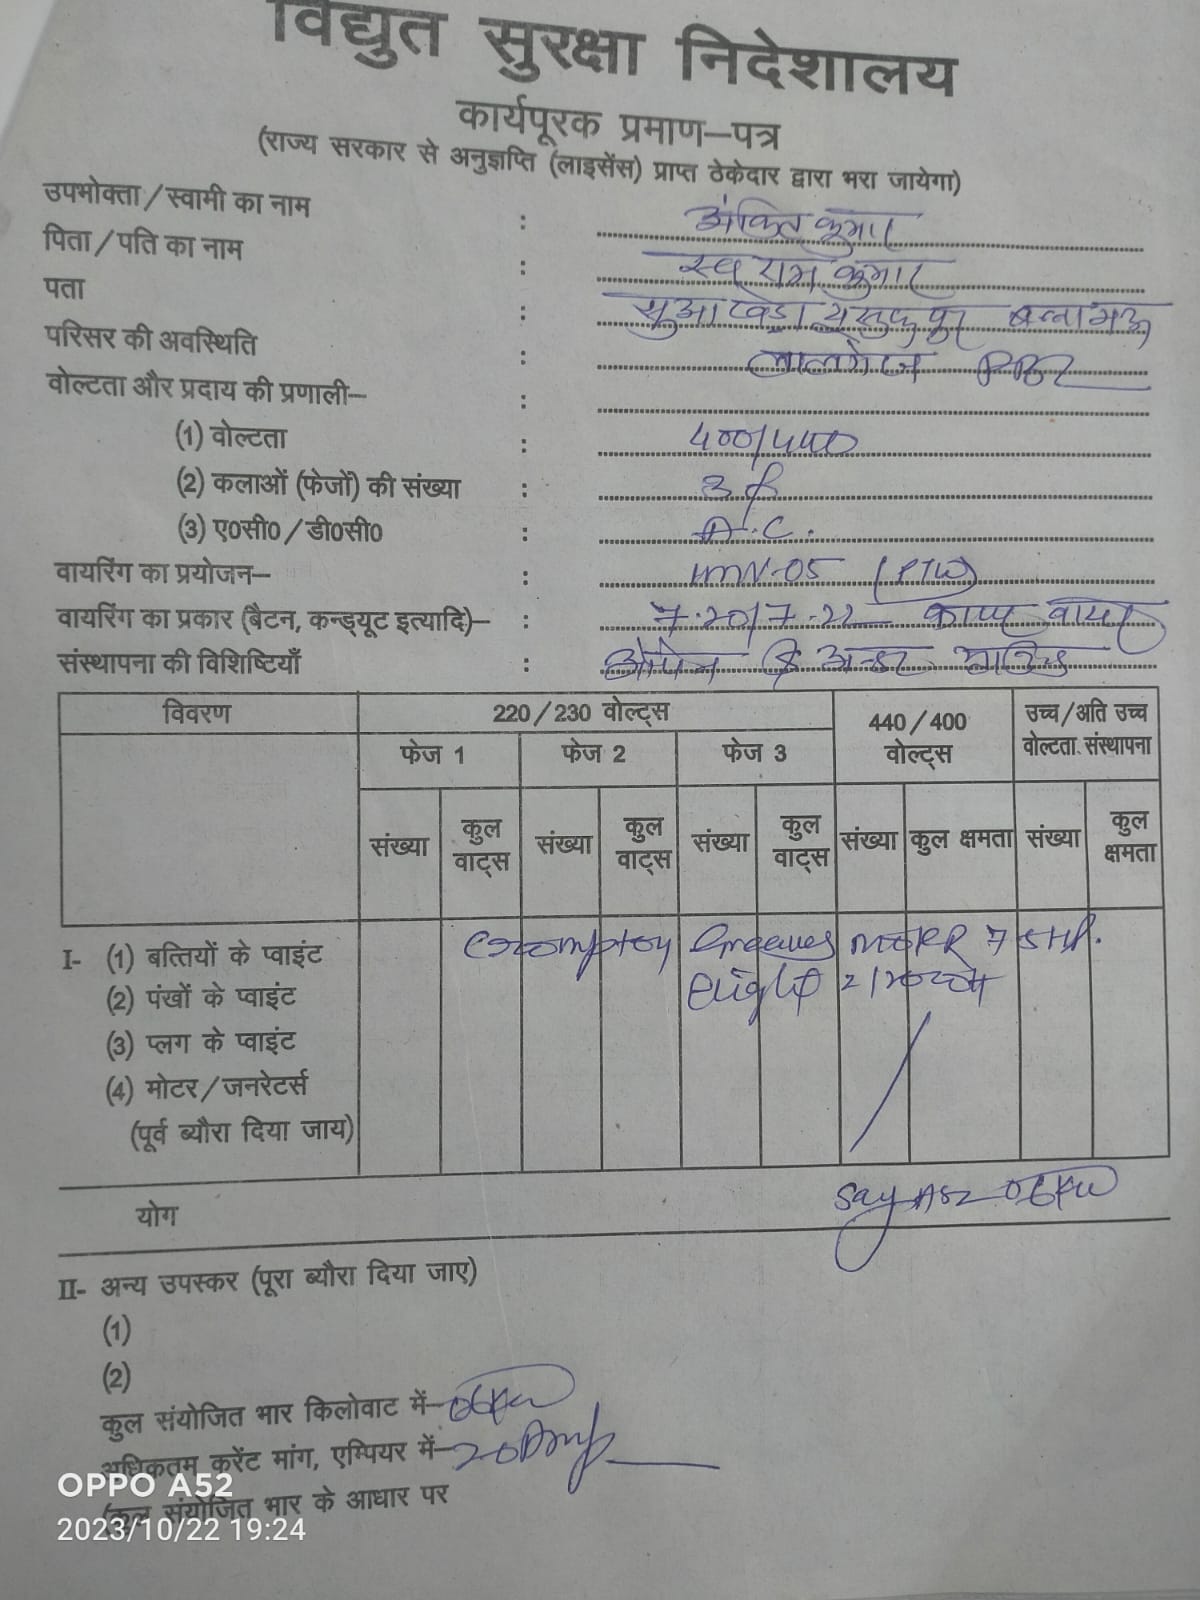 विद्युत सुरक्षा निदेशालय
कार्यपूरक प्रमाण–पत्र
(राज्य सरकार से अनुज्ञप्ति (लाइसेंस) प्राप्त ठेकेदार द्वारा भरा जायेगा)
उपभोक्ता/स्वामी का नाम : अंकित कुमार
पिता/पति का नाम : स्व राम कुमार
पता :
परिसर की अवस्थिति : लालगंज PBZ
वोल्टता और प्रदाय की प्रणाली– :
(1) वोल्टता : 400/440
(2) कलाओं (फेजों) की संख्या : 3
(3) ए0सी0/डी0सी0 : A.C.
वायरिंग का प्रयोजन– : (PTW)
वायरिंग का प्रकार (बैटन, कन्ड्यूट इत्यादि)– : 7.20/7.22 वायर
संस्थापना की विशिष्टियाँ :
विवरण 220/230 वोल्ट्स 440/400 वोल्ट्स उच्च/अति उच्च वोल्टता संस्थापना
फेज 1 फेज 2 फेज 3
संख्या कुल वाट्स संख्या कुल वाट्स संख्या कुल वाट्स संख्या कुल क्षमता संख्या कुल क्षमता
I- (1) बत्तियों के प्वाइंट Greaves 7
(2) पंखों के प्वाइंट
(3) प्लग के प्वाइंट
(4) मोटर/जनरेटर्स
(पूर्व ब्यौरा दिया जाय)
योग Say 06KW
II- अन्य उपस्कर (पूरा ब्यौरा दिया जाए)
(1)
(2)
कुल संयोजित भार किलोवाट में– 06KW
अधिकतम करेंट मांग, एम्पियर में– 20Amp
(कुल संयोजित भार के आधार पर
OPPO A52
2023/10/22 19:24